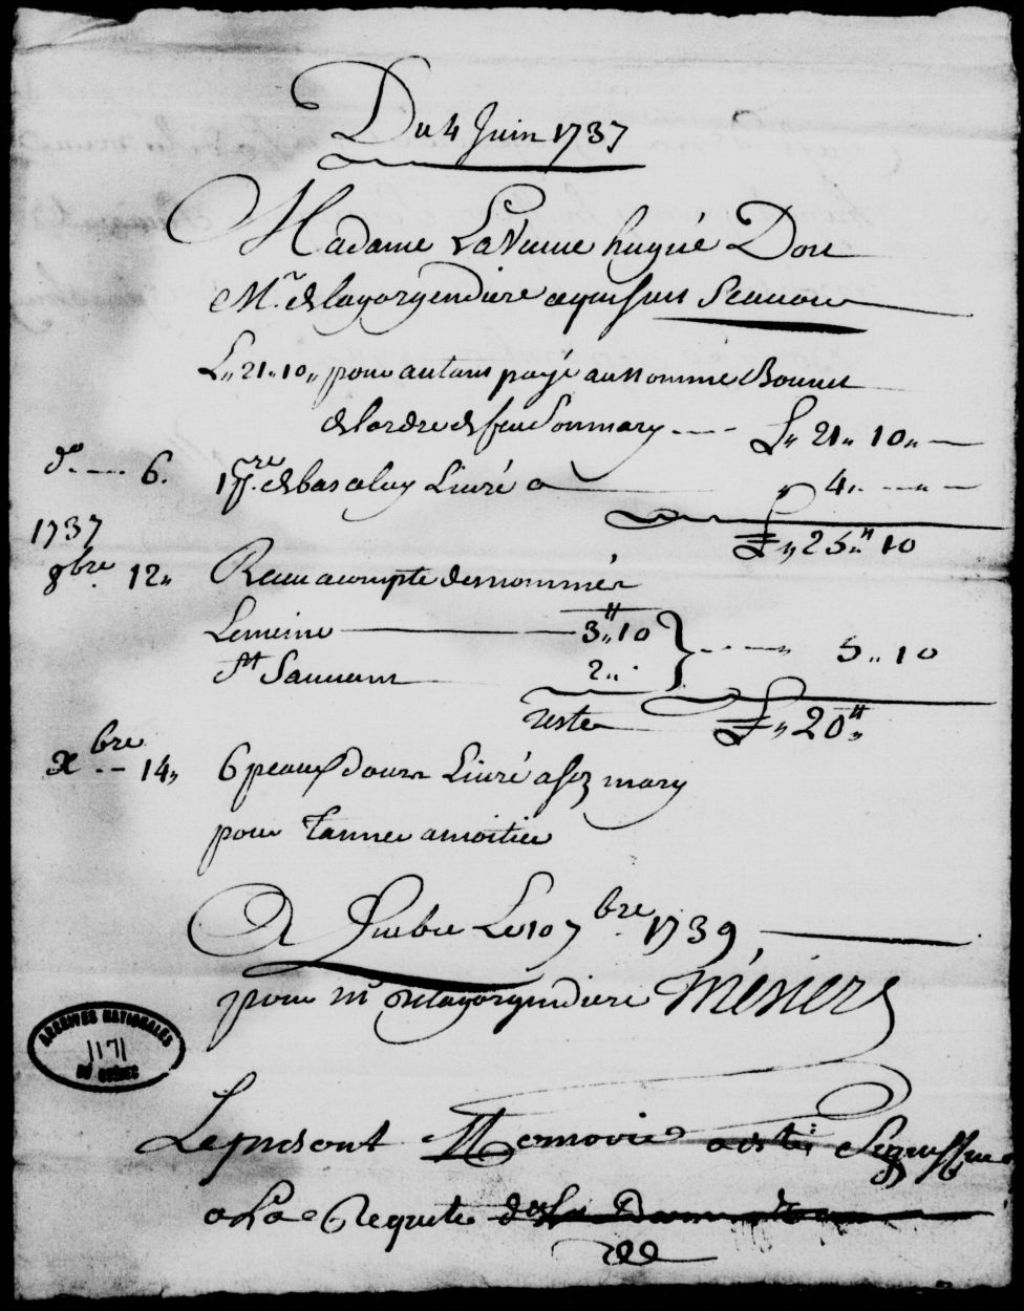 Du 4 Juin 1737
Madame La Veuve huqué Doit
Mr. delagorgendiere a qui suit Scavoir
L,, 21,, 10,, pour autant payé au nommé Bonnet
de lordre de feu Son mary ---- L,, 21,, 10,, —
do ---- 6. 1 pre. de bas Livré a — ,, 4,, ---- —
L,, 25,, 10
1737
8bre 12,, Receu acompte des nommés
Lemeine — 3,, 10
St Sauveur 2,, } ---- 5,, 10
reste L,, 20,,
xbre -- 14,, 6 peaux dours Livré a son mary
pour Tanner a moitié
A Quebec Le 10 7bre 1739
pour mr Delagorgendiere Mésiers
ARCHIVES NATIONALES
1171
DU QUÉBEC
Le present Memoire a esté
a La Requete de La